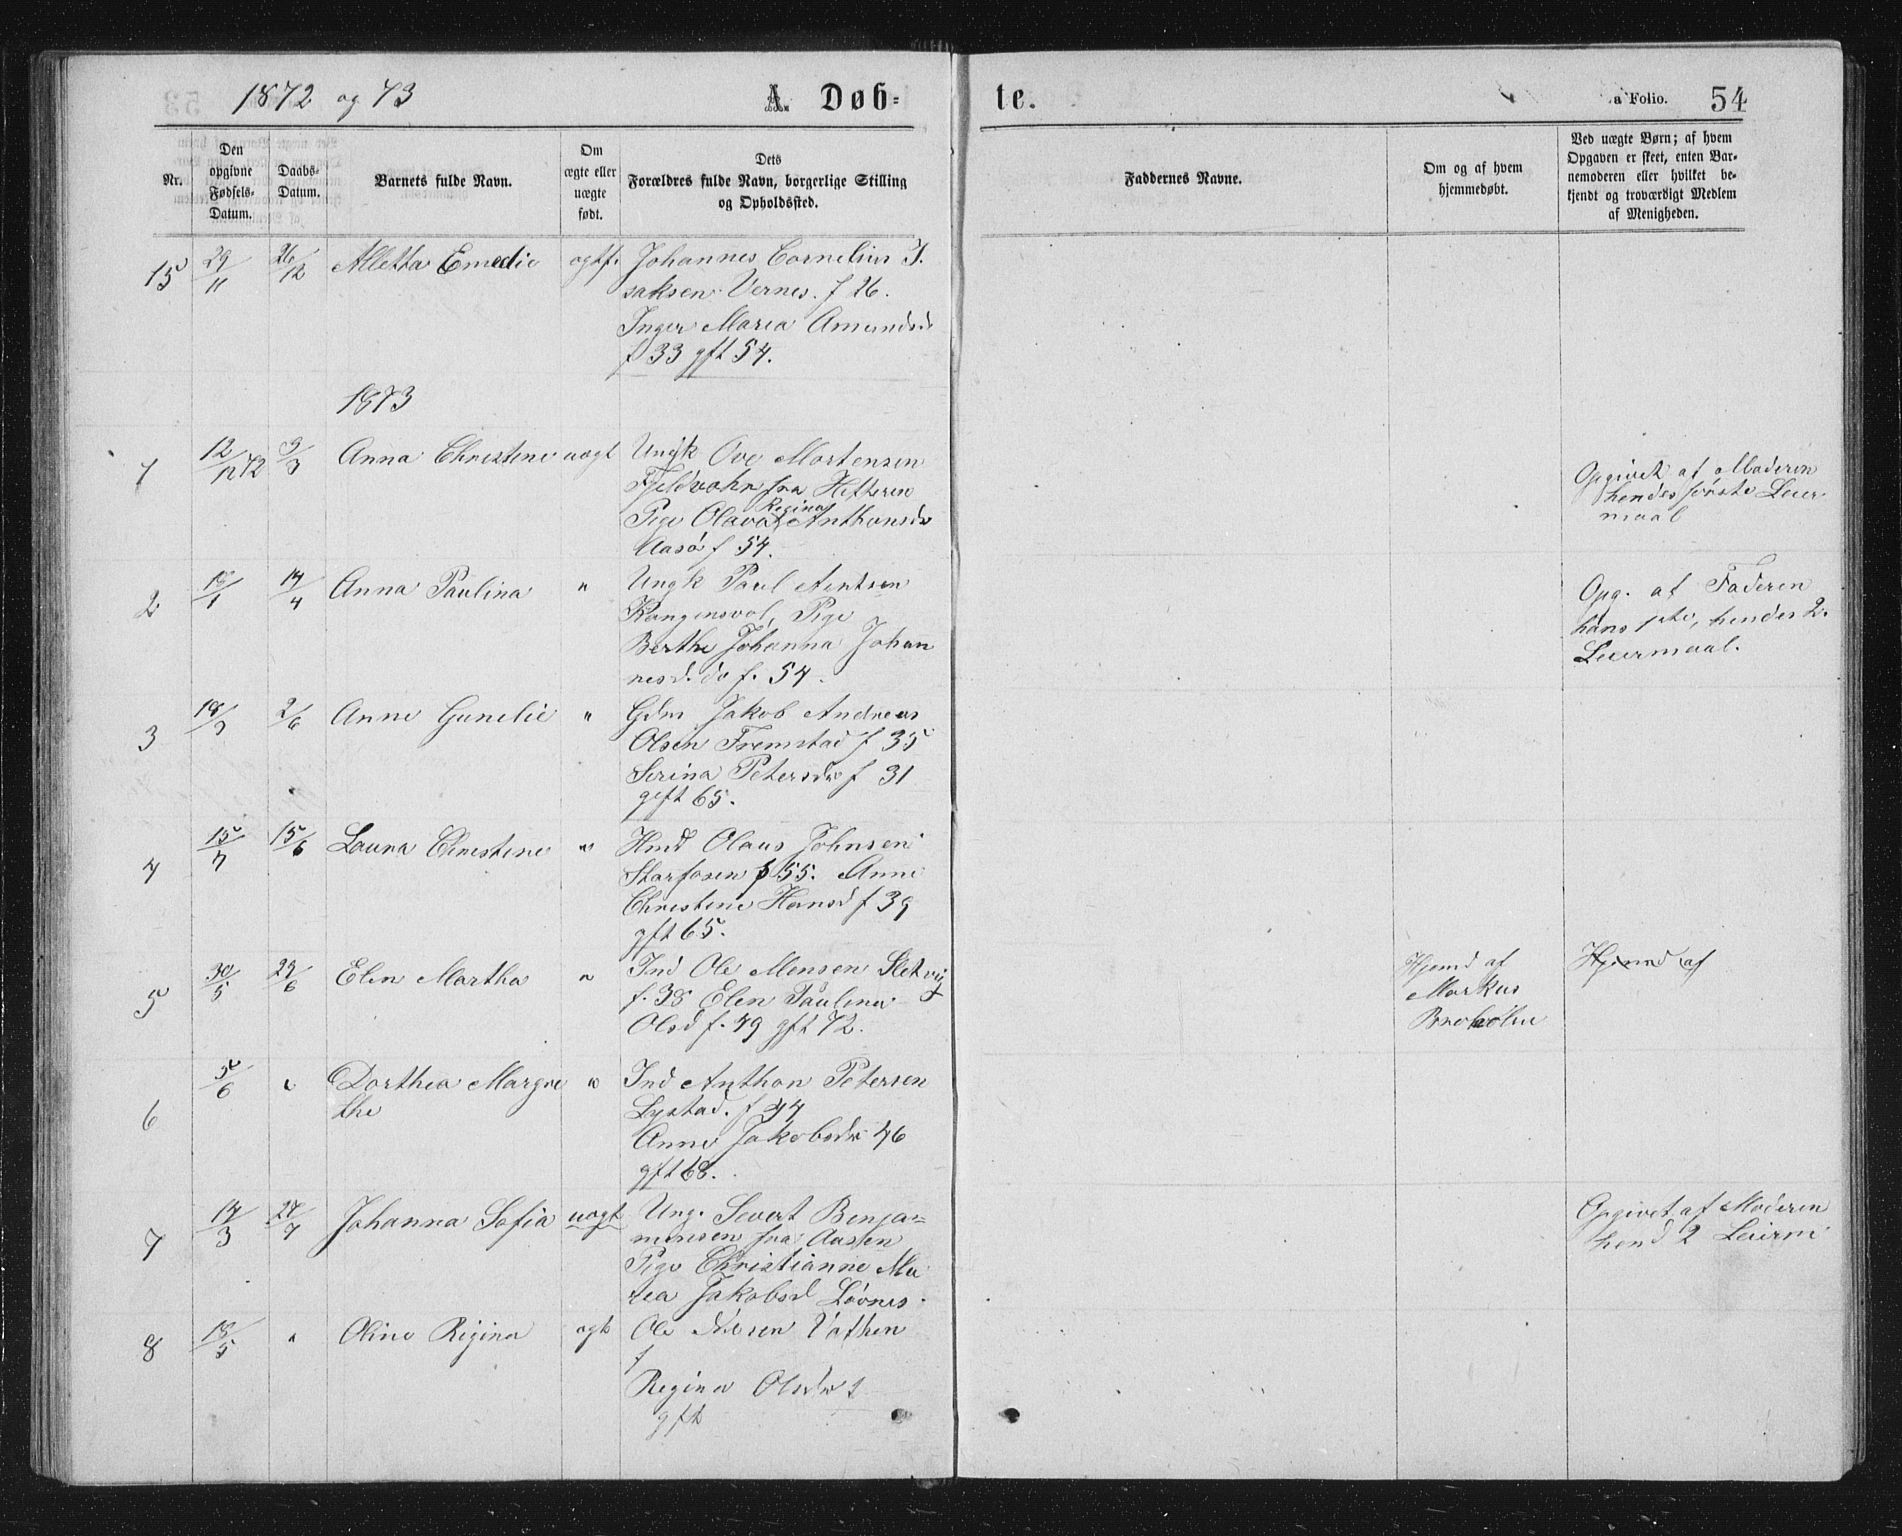 1872 og 73 A. Døb- te. a Folio. 54
Nr.
Den opgivne Fødsels-Datum.
Daabs-Datum.
Barnets fulde Navn.
Om ægte eller uægte født.
Dets Forældres fulde Navn, borgerlige Stilling og Opholdssted.
Faddernes Navne.
Om og af hvem hjemmedøbt.
Ved uægte Børn; af hvem Opgaven er skeet, enten Barnemoderen eller hvilket bekjendt og troværdigt Medlem af Menigheden.
15 29/11 26/12 Alletta Emelie ægtf. Johannes Cornelius I.
saksen Vernes. f 26.
Inger Maria Amundsd
f 33 gft 54.
1873
1 12/12 72 9/3 Anna Christine uægt Ungk Ove Mortensen
Fjeldvær fra Hitteren
Regina
Pige Olava Anthonsd
Aasø f 54.
Opgivet af Moderen
hendes første Leier
maal
2 18/1 14/4 Anna Paulina " Ungk Paul Arntsen
Kongensvol, Pige
Berthe Johanna Johan
nesd. do f. 54.
Opg. af Faderen
hans 1ste, hendes 2.
Leiermaal.
3 18/3 2/6 Anne Gunelie " Gdm Jakob Andreas
Olsen Fremstad f 35
Serina Petersdr f 31
gift 65.
4 15/4 15/6 Laura Christine " Hmd Olaus Johnsen
Storfosen f 55. Anne
Christine Hansd f 39
gft 65.
5 30/5 29/6 Elen Martha " Ind Ole Monsen Sletvig
f. 38 Elen Paulina
Olsd f. 49 gft 72.
Hjemd af
Markus
Broholm
Hjemd af
6 5/6 " Dorthea Margre
the " Ind Anthon Petersen
Lystad. f 44
Anne Jakobsdr 46
gft 68.
7 14/3 27/7 Johanna Sofia uægt Ung. Severt Benja-
minsen fra Aasen
Pige Christianne Ma
rea Jakobsd Løvnes.
Opgivet af Moderen
hend 2 Leierm
8 18/5 " Oline Regina ægt Ole Nilsen Vathen
f
Regina Olsdr f
gft